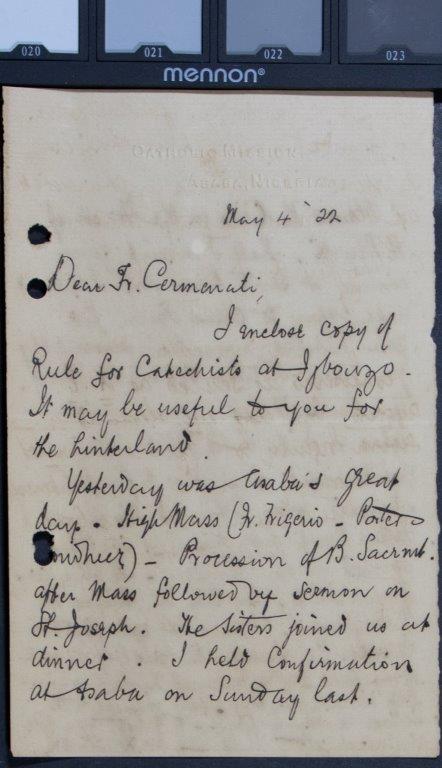 020 021 022 023
mennon®
CATHOLIC MISSION,
ASABA, NIGERIA.
May 4 '22
Dear Fr. Cermenati,
I enclose copy of
Rule for Catechists at Igbouzo.
It may be useful to you for
the hinterland.
Yesterday was Asaba's great
day. High Mass (Fr. Frigerio -
) - Procession of B. Sacrmt.
after Mass followed by Sermon on
St. Joseph. The Sisters joined us at
dinner. I held Confirmation
at Asaba on Sunday last.